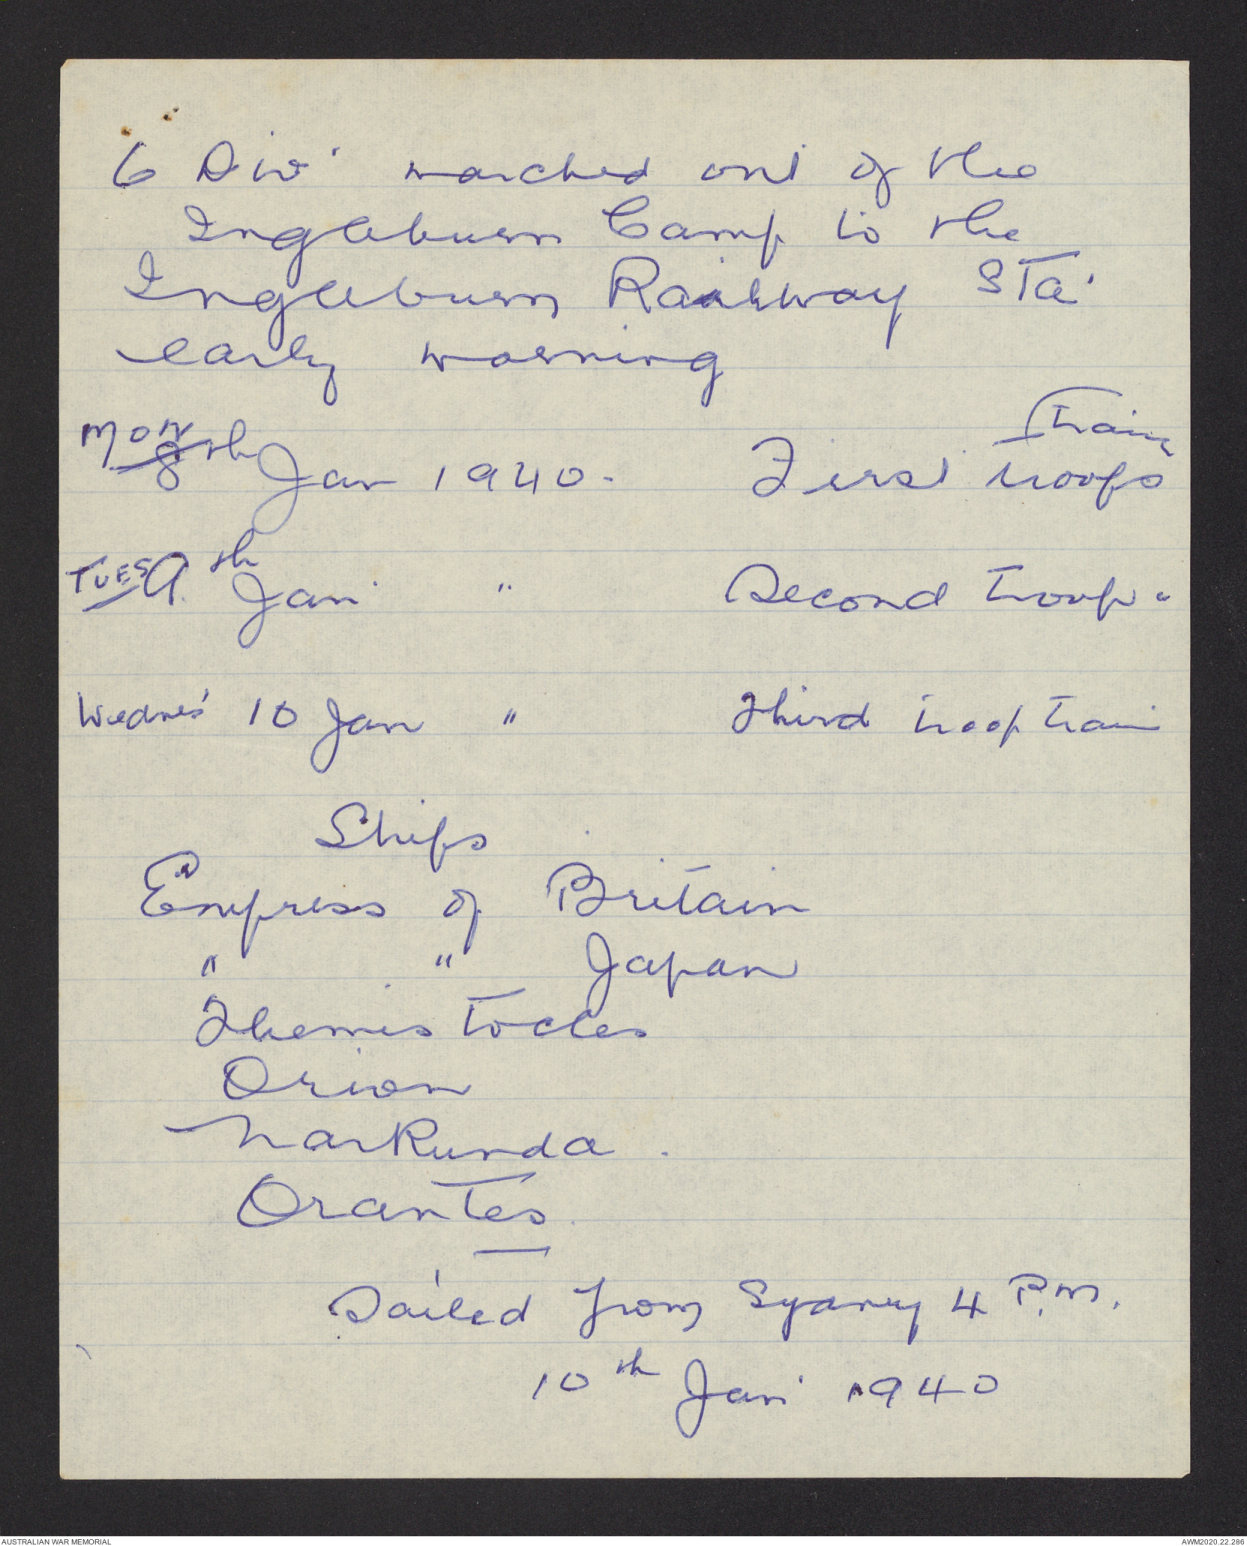 6 Div' marched out of the
Ingleburn Camp to the
Ingleburn Railway Sta'
early morning
Mon 8th Jan 1940. First troops train
Tues 9th Jan' " Second troop "
Wednes' 10 Jan " Third troop train
Ships
Empress of Britain
" " Japan
Themistocles
Orion
Narkunda.
Orantes
Sailed from Sydney 4 P.m.
10th Jan' 1940
AUSTRALIAN WAR MEMORIAL AWM2020.22.286